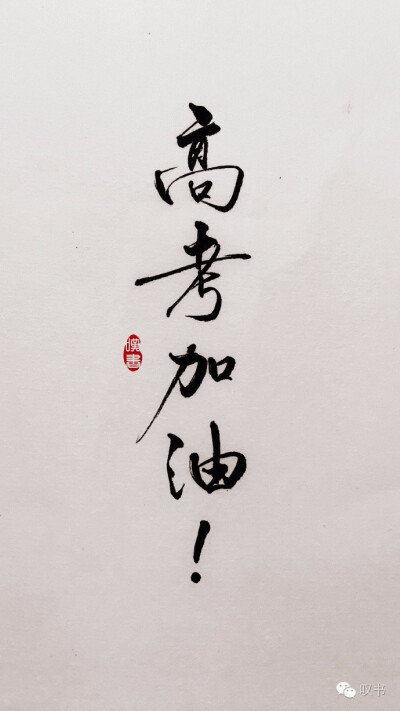 高考加油！
嘆書
叹书